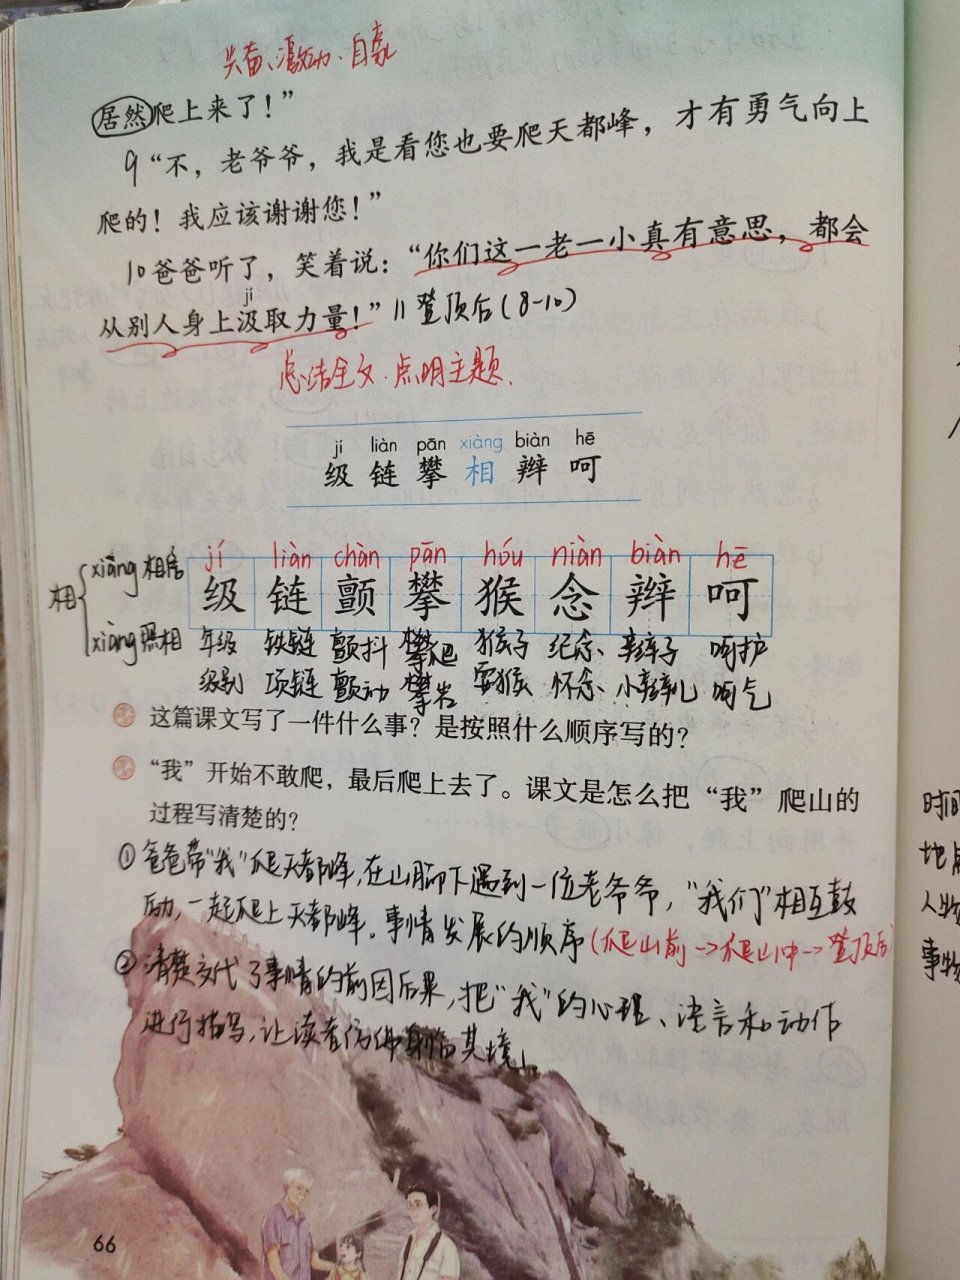 兴奋、激动、自豪
居然爬上来了！”
9 “不，老爷爷，我是看您也要爬天都峰，才有勇气向上
爬的！我应该谢谢您！”
10 爸爸听了，笑着说：“你们这一老一小真有意思，都会
jí
从别人身上汲取力量！” || 登顶后(8-10)
总结全文.点明主题.
jí liàn pān xiàng biàn hē
级 链 攀 相 辫 呵
相 xiāng 相信
xiàng 照相
jí liàn chàn pān hóu niàn biàn hē
级 链 颤 攀 猴 念 辫 呵
年级 铁链 颤抖 攀爬 猴子 纪念 辫子 呵护
级别 项链 颤动 攀岩 耍猴 怀念 小辫儿 呵气
这篇课文写了一件什么事？是按照什么顺序写的？
“我”开始不敢爬，最后爬上去了。课文是怎么把“我”爬山的
过程写清楚的？
①爸爸带“我”爬天都峰,在山脚下遇到一位老爷爷，“我们”相互鼓
励,一起爬上天都峰。事情发展的顺序(爬山前→爬山中→登顶后)
②清楚交代了事情的前因后果,把“我”的心理、语言和动作
进行描写,让读者仿佛身临其境」.
时间
地点
人物
事物
66